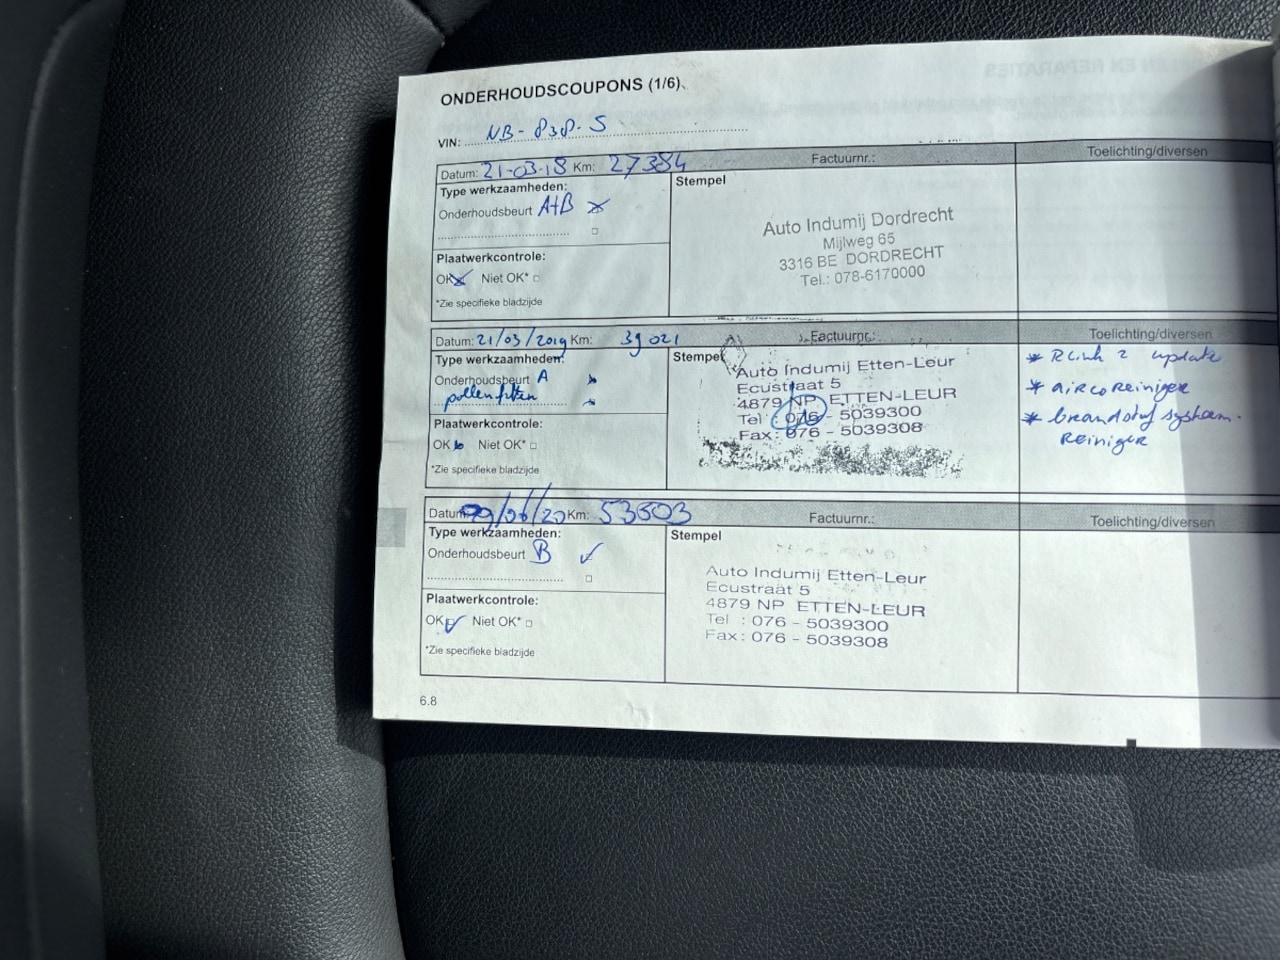 ONDERHOUDSCOUPONS (1/6)
VIN: NB-838-S
Datum: 21-03-18 Km: 27384 Factuurnr.: Toelichting/diversen
Type werkzaamheden: Stempel
Onderhoudsbeurt A+B
Auto Indumij Dordrecht
Mijlweg 65
3316 BE DORDRECHT
Tel.: 078-6170000
Plaatwerkcontrole:
OK Niet OK*
*Zie specifieke bladzijde
Datum: 21/03/2019 Km: 39021 Factuurnr.: Toelichting/diversen
Type werkzaamheden: Stempel
Onderhoudsbeurt A
pollenfilter
Auto Indumij Etten-Leur
Ecustraat 5
4879 NP ETTEN-LEUR
Tel : 076 - 5039300
Fax: 076 - 5039308
* Rlink 2 update
* airco Reiniger
* brandstof systeem
Reiniger
Plaatwerkcontrole:
OK Niet OK*
*Zie specifieke bladzijde
Datum: /06/20 Km: 53603 Factuurnr.: Toelichting/diversen
Type werkzaamheden: Stempel
Onderhoudsbeurt B
Auto Indumij Etten-Leur
Ecustraat 5
4879 NP ETTEN-LEUR
Tel : 076 - 5039300
Fax: 076 - 5039308
Plaatwerkcontrole:
OK Niet OK*
*Zie specifieke bladzijde
6.8